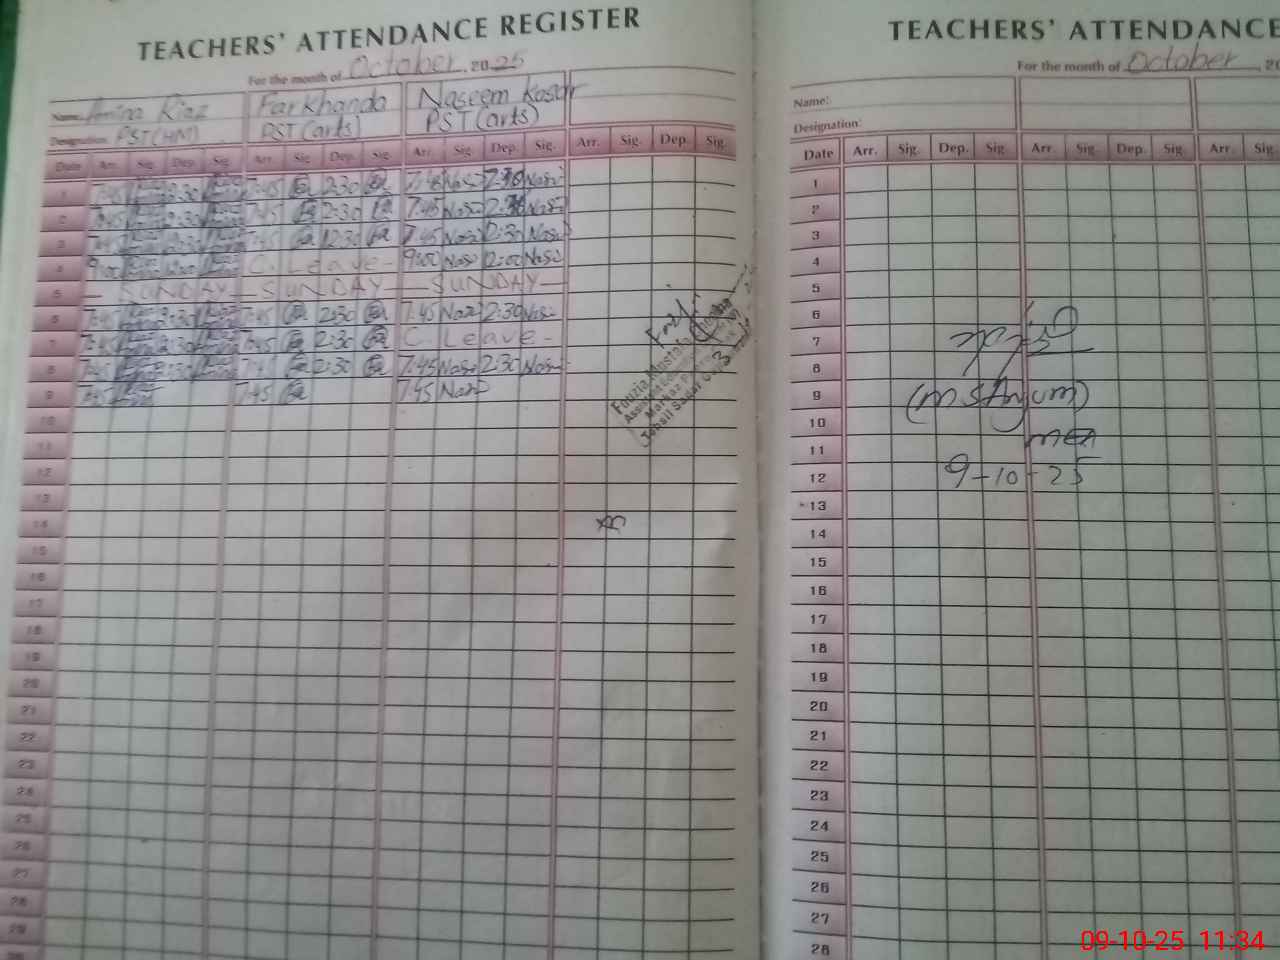 TEACHERS' ATTENDANCE REGISTER
For the month of October, 2025
Name: Amina Riaz Farkhanda Naseem Kosar
Designation: PST(HM) PST(arts) PST(arts)
Date Arr. Sig. Dep. Sig. Arr. Sig. Dep. Sig. Arr. Sig. Dep. Sig. Arr. Sig. Dep. Sig.
1 7:45 2:30 7:45 2:30 7:45 2:30
2 7:45 2:30 7:45 2:30 7:45
3 7:45 2:30 7:45 2:30 7:45 2:30
4 9:00 12:00 C. Leave - 9:00 12:00
5 - SUNDAY - SUNDAY - SUNDAY -
6 7:45 2:30 7:45 2:30 7:45 2:30
7 7:45 2:30 7:45 2:30 C. Leave -
8 7:45 2:30 7:45 2:30 7:45 2:30
9 7:45 7:45 7:45
10
11
12
13
14
15
16
17
18
19
20
21
22
23
24
25
26
27
28
29
Fouzia Mustafa
TEACHERS' ATTENDANCE
For the month of October, 20
Name:
Designation:
Date Arr. Sig. Dep. Sig. Arr. Sig. Dep. Sig. Arr. Sig.
1
2
3
4
5
6
7
8
9 (M S Anjum)
10
11 MEA
12 9-10-25
13
14
15
16
17
18
19
20
21
22
23
24
25
26
27
28
09-10-25 11:34